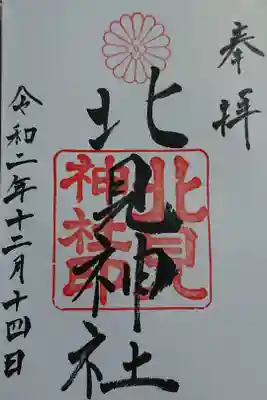 奉拝
北見神社
北見
神社印
令和二年十二月十四日